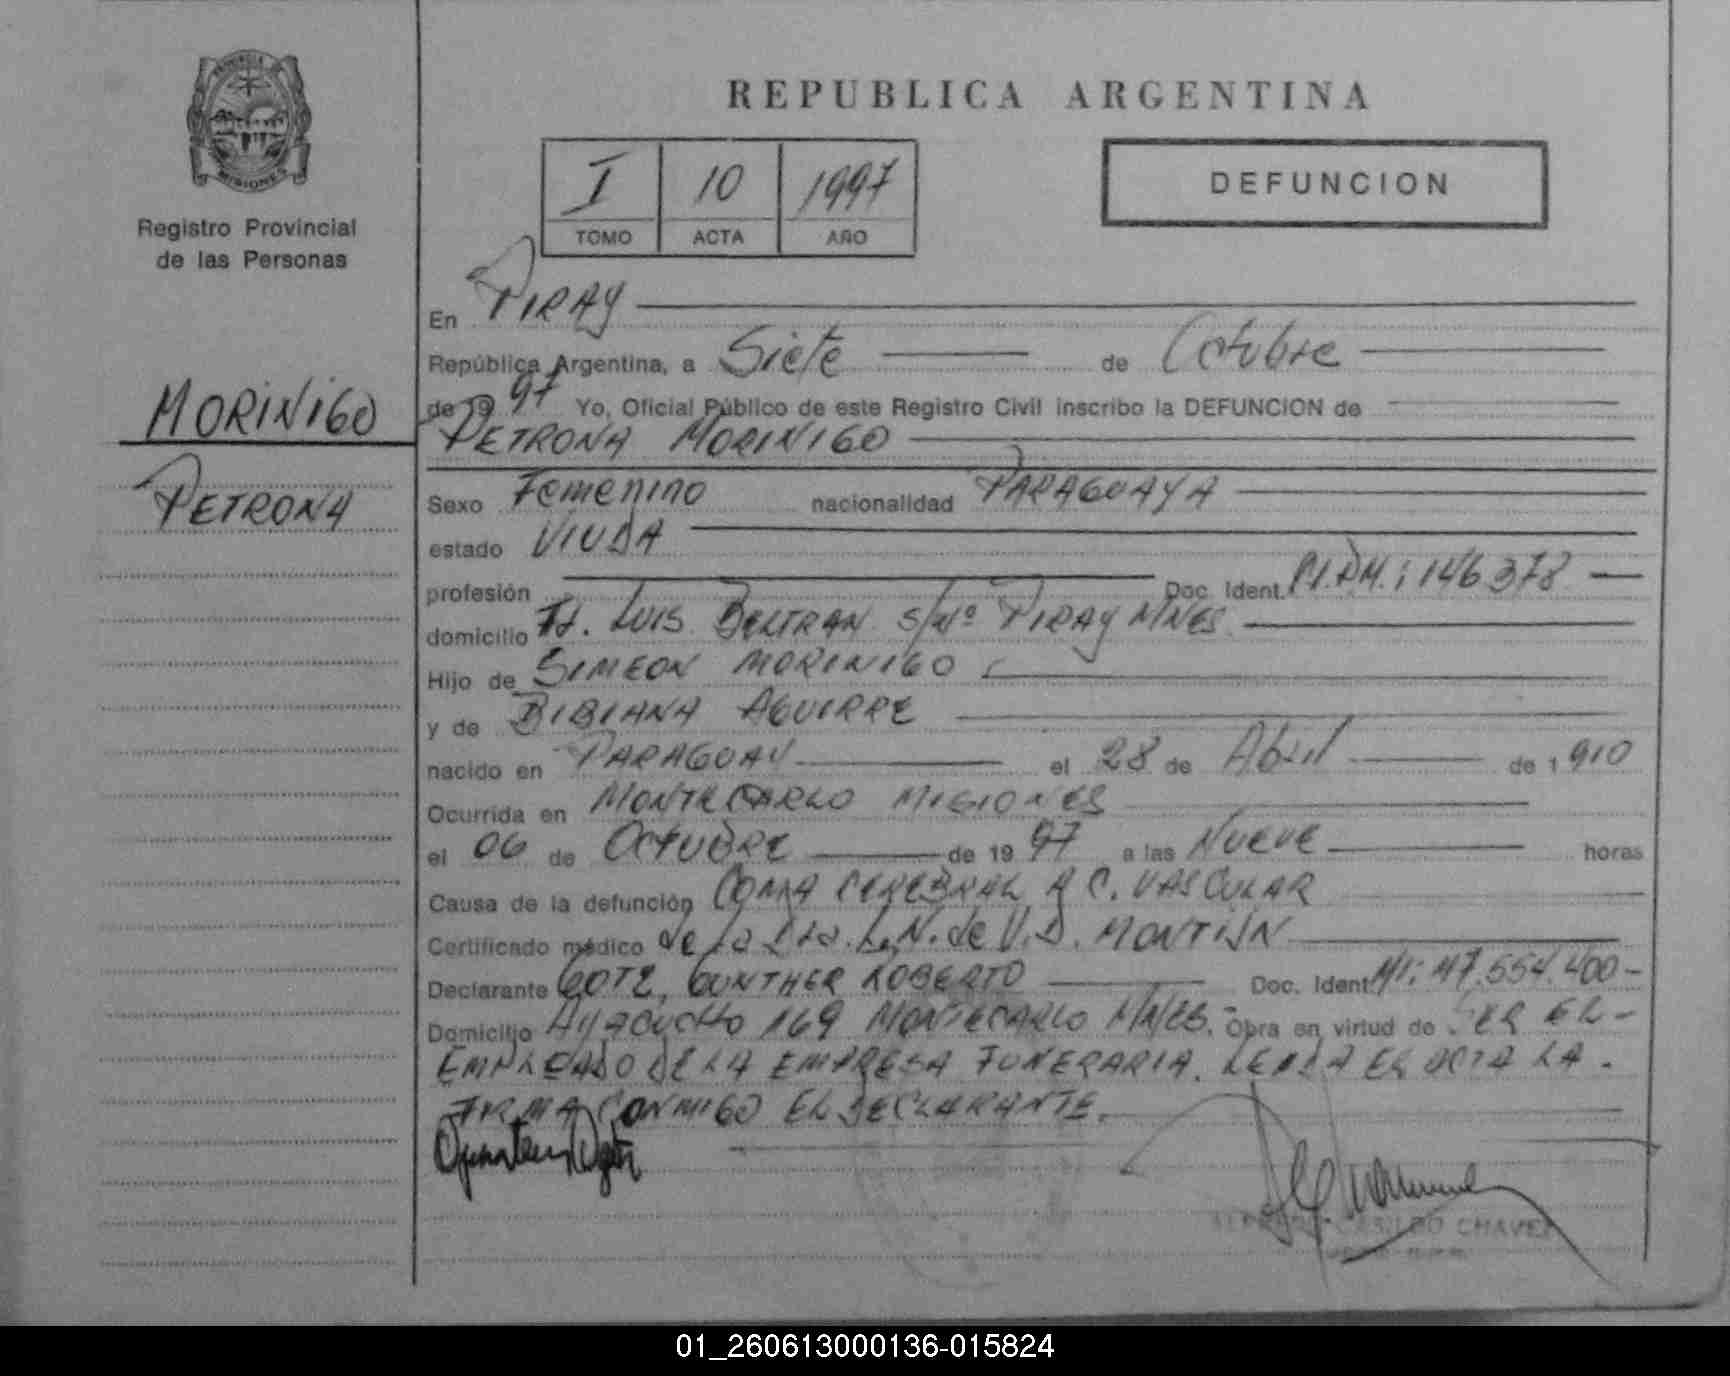 PROVINCIA DE
MISIONES
Registro Provincial
de las Personas
MORINIGO
PETRONA
REPUBLICA ARGENTINA
I 10 1997
TOMO ACTA AÑO
DEFUNCION
En PIRAY
República Argentina, a Siete de Octubre
de 19 97 Yo, Oficial Público de este Registro Civil inscribo la DEFUNCION de
PETRONA MORINIGO
Sexo Femenino nacionalidad PARAGUAYA
estado VIUDA
profesión Doc. Ident. 146378
domicilio LUIS BELTRAN S/Nº PIRAY MNES.
Hijo de SIMEON MORINIGO
y de BIBIANA AGUIRRE
nacido en PARAGUAY el 28 de Abril de 1 910
Ocurrida en MONTECARLO MISIONES
el 06 de OCTUBRE de 19 97 a las NUEVE horas
Causa de la defunción COMA CEREBRAL A C. VASCULAR
Certificado médico de la Dra. L. N. de V. D. MONTIJN
Declarante GOTZ, GUNTHER ROBERTO Doc. Ident. MI: M7.554.400-
Domicilio AYACUCHO 169 MONTECARLO MNES. Obra en virtud de SER EL-
EMPLEADO DE LA EMPRESA FUNERARIA. LEIDA EL ACTA LA.
FIRMA CONMIGO EL DECLARANTE.
CHAVEZ
01_260613000136-015824